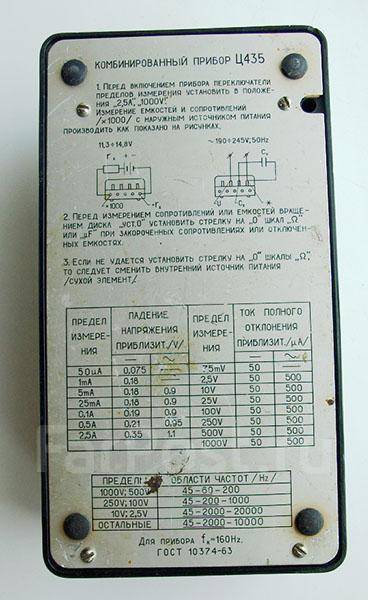 КОМБИНИРОВАННЫЙ ПРИБОР Ц435
1. ПЕРЕД ВКЛЮЧЕНИЕМ ПРИБОРА ПЕРЕКЛЮЧАТЕЛИ
ПРЕДЕЛОВ ИЗМЕРЕНИЯ УСТАНОВИТЬ В ПОЛОЖЕ-
НИЯ „2,5А", „1000V".
ИЗМЕРЕНИЕ ЕМКОСТЕЙ И СОПРОТИВЛЕНИЙ
/×1000/ С НАРУЖНЫМ ИСТОЧНИКОМ ПИТАНИЯ
ПРОИЗВОДИТЬ КАК ПОКАЗАНО НА РИСУНКАХ.
11,3÷14,8V ~190÷245V; 50Hz
rₓ + − Cₓ
×1000 −rₓ U Cₓ *
2. ПЕРЕД ИЗМЕРЕНИЕМ СОПРОТИВЛЕНИЙ ИЛИ ЕМКОСТЕЙ ВРАЩЕ-
НИЕМ ДИСКА „УСТ.0" УСТАНОВИТЬ СТРЕЛКУ НА „0" ШКАЛ „Ω"
ИЛИ „µF" ПРИ ЗАКОРОЧЕННЫХ СОПРОТИВЛЕНИЯХ ИЛИ ОТКЛЮЧЕН-
НЫХ ЕМКОСТЯХ.
3. ЕСЛИ НЕ УДАЕТСЯ УСТАНОВИТЬ СТРЕЛКУ НА „0" ШКАЛЫ „Ω",
ТО СЛЕДУЕТ СМЕНИТЬ ВНУТРЕННИЙ ИСТОЧНИК ПИТАНИЯ
/СУХОЙ ЭЛЕМЕНТ/.
ПРЕДЕЛ ИЗМЕРЕ-НИЯ ПАДЕНИЕ НАПРЯЖЕНИЯ ПРИБЛИЗИТ. /V/ ПРЕДЕЛ ИЗМЕРЕ-НИЯ ТОК ПОЛНОГО ОТКЛОНЕНИЯ ПРИБЛИЗИТ. /µA/
— ~ — ~
50µA 0,075 75mV 50
1mA 0,18 2,5V 50 500
5mA 0,18 0,9 10V 50 500
25mA 0,18 0,9 25V 50 500
0,1A 0,19 0,9 100V 50 500
0,5A 0,21 0,95 250V 50 500
2,5A 0,35 1,1 500V 50 500
1000V 50 500
ПРЕДЕЛЫ ОБЛАСТИ ЧАСТОТ /Hz/
1000V; 500V 45-60-200
250V; 100V 45-200-1000
10V; 2,5V 45-2000-20000
ОСТАЛЬНЫЕ 45-2000-10000
ДЛЯ ПРИБОРА fₖ=160Hz,
ГОСТ 10374-63